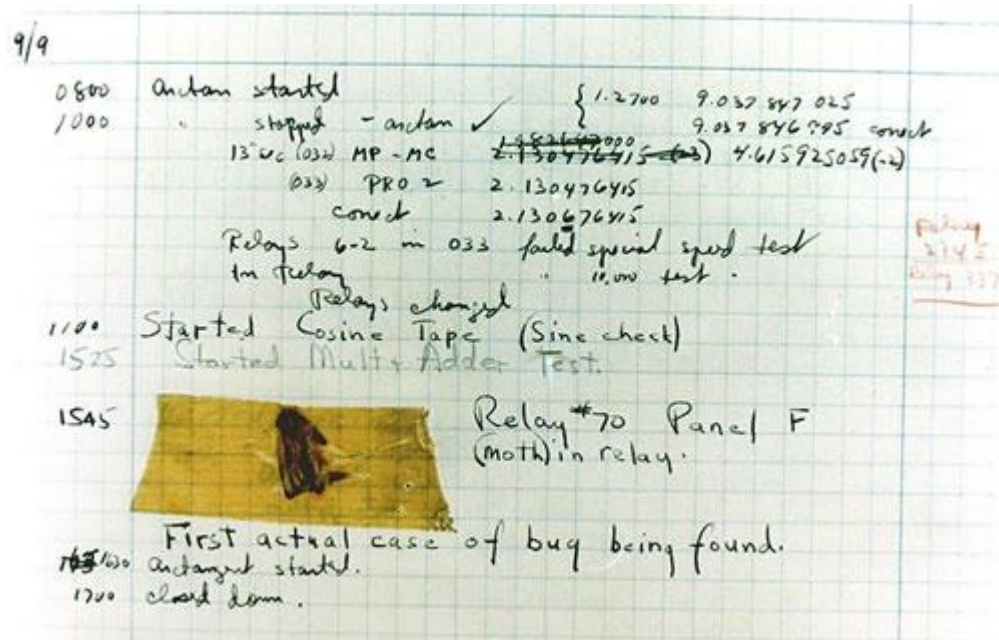 9/9
0800 arctan started { 1.2700 9.037 847 025
1000 " stopped - arctan ✓ 9.037 846 795 conect
13"uc (032) MP - MC 1.982647000 2.130476415 (-3) 4.615925059(-2)
(033) PRO 2 2.130476415
conect 2.130676415
Relays 6-2 in 033 failed special speed test
In Relay " 10,000 test .
Relays changed
1100 Started Cosine Tape (Sine check)
1525 Started Mult+Adder Test.
1545 Relay #70 Panel F
(moth) in relay.
First actual case of bug being found.
1630 arctangent started.
1700 closed down.
Relay
2145
Relay 337